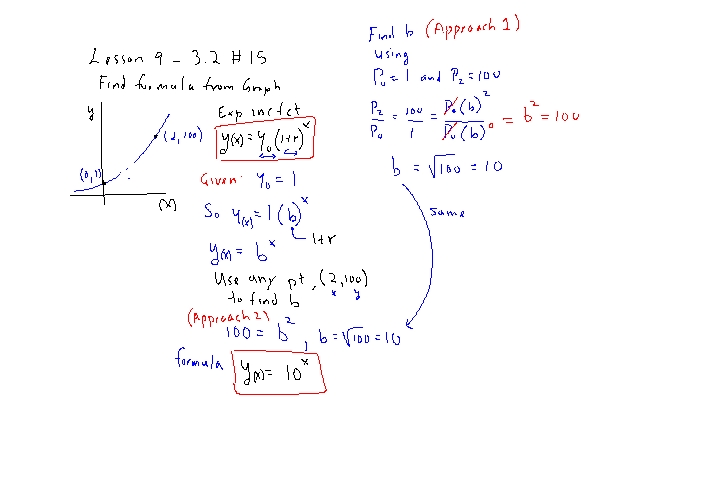 Lesson 9 - 3.2 #15
Find formula from Graph
y
(2,100)
(0,1)
(x)
Exp
y(x) = y₀(1+r)^x
Given: y₀ = 1
So y(x) = 1(b)^x
1+r
y(x) = b^x
Use any pt, (2,100)
x y
to find b
(Approach 2)
100 = b², b = √100 = 10
formula y(x) = 10^x
Find b (Approach 1)
using
P₀ = 1 and P₂ = 100
P₂/P₀ = 100/1 = P₀(b)²/P₀(b)⁰ = b² = 100
b = √100 = 10
same